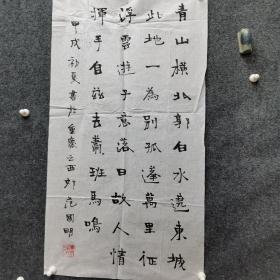 青山橫北郭白水遶東城
此地一為別孤蓬萬里征
浮雲遊子意落日故人情
揮手自茲去蕭班馬鳴
甲戌初夏書於重慶之西郊范國明